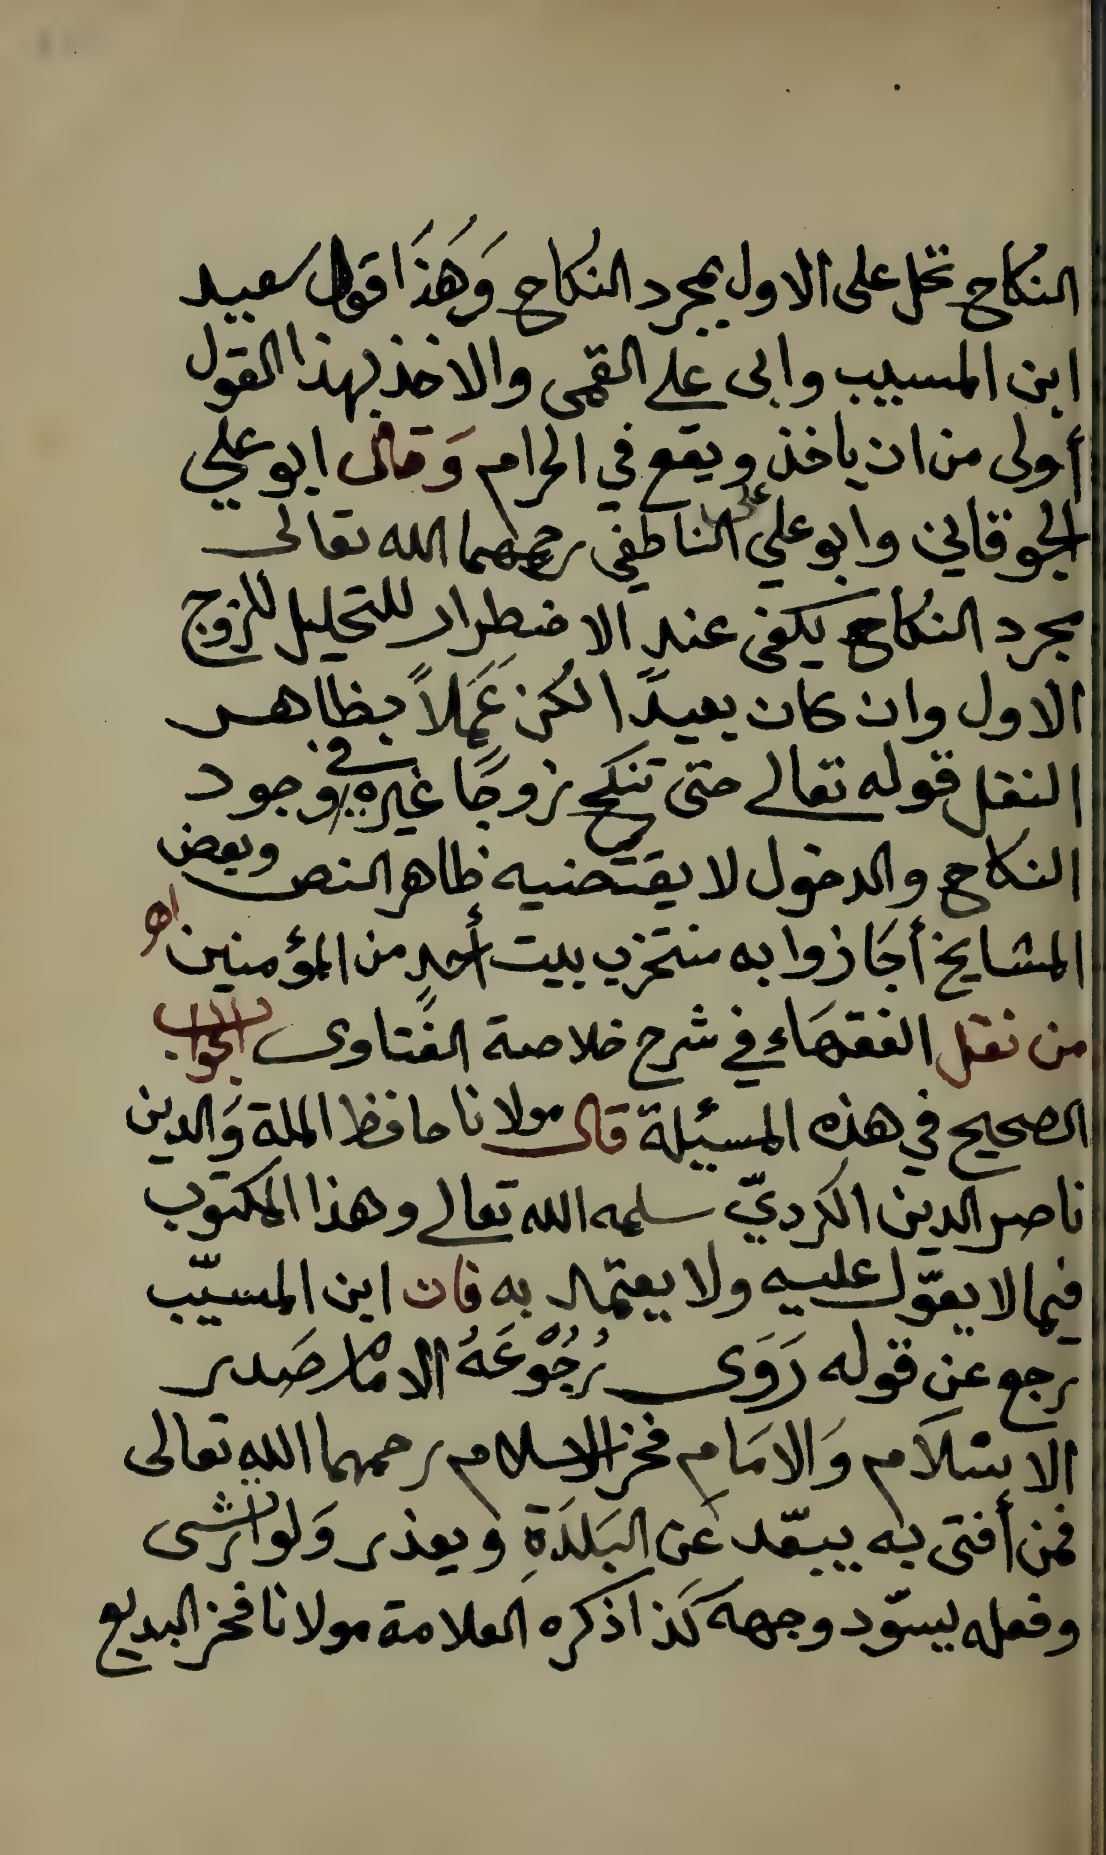 النكاح تحل على الاول بمجرد النكاح وَهَذَا قول سعيد
ابن المسيب وابى على القمى والاخذ بهذا القول
أولى من ان ياخذ ويقع في الحرام وَقال ابو علي
الجوقاني وابو علي الناطفي رحمهما الله تعالى
بمجرد النكاح يكفى عند الاضطرار للتحليل للزوج
الاول وان كان بعيدًا لكن عَمَلاً بظاهر
النقل قوله تعالى حتى تنكح زوجًا غيره في وجود
النكاح والدخول لا يقتضيه ظاهر النص وبعض
المشايخ أجَازوا به بيت أحدٍ من المؤمنين اهـ
من نقل الفقهَاء في شرح خلاصة الفَتاوى الجواب
الصحيح في هذه المسئلة قال مولانا حافظ الملة وَالدين
ناصر الدين الكرديّ سلمه الله تعالى وهذا المكتوب
فيما لا يعوّل عليه ولا يعتمد به فان ابن المسيّب
رجع عن قوله رَوَى رُجُوْعَهُ الامام صَدر
الاسْلَام وَالامَام فخر الاسلام رحمهما الله تعالى
فمن أفتى به يبعّد عَن البَلدَةِ ويعذر وَلو ارتشى
وفعله يسوّد وجهه كَذا ذكره العلامة مولانا فخر البديع